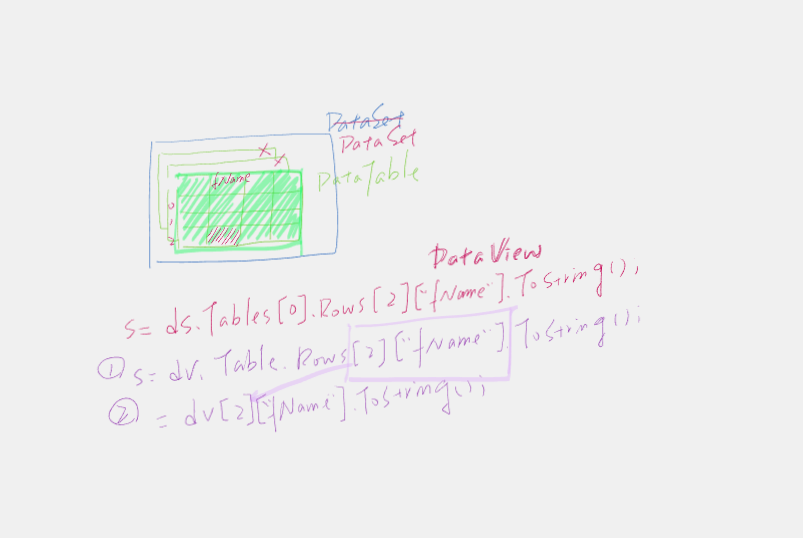 DataSet
DataSet
DataTable
fName
0
1
2
DataView
s= ds.Tables[0].Rows[2]["fName"].ToString();
① s= dv. Table. Rows[2]["fName"].ToString();
② = dv[2]["fName"].ToString();